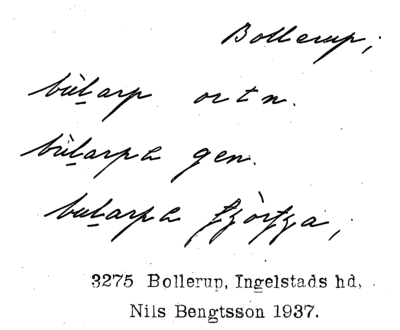 Bollerup;
bùḻarp ortn.
bùḻarpa gen.
buḻarpa
3275 Bollerup, Ingelstads hd,
Nils Bengtsson 1937.